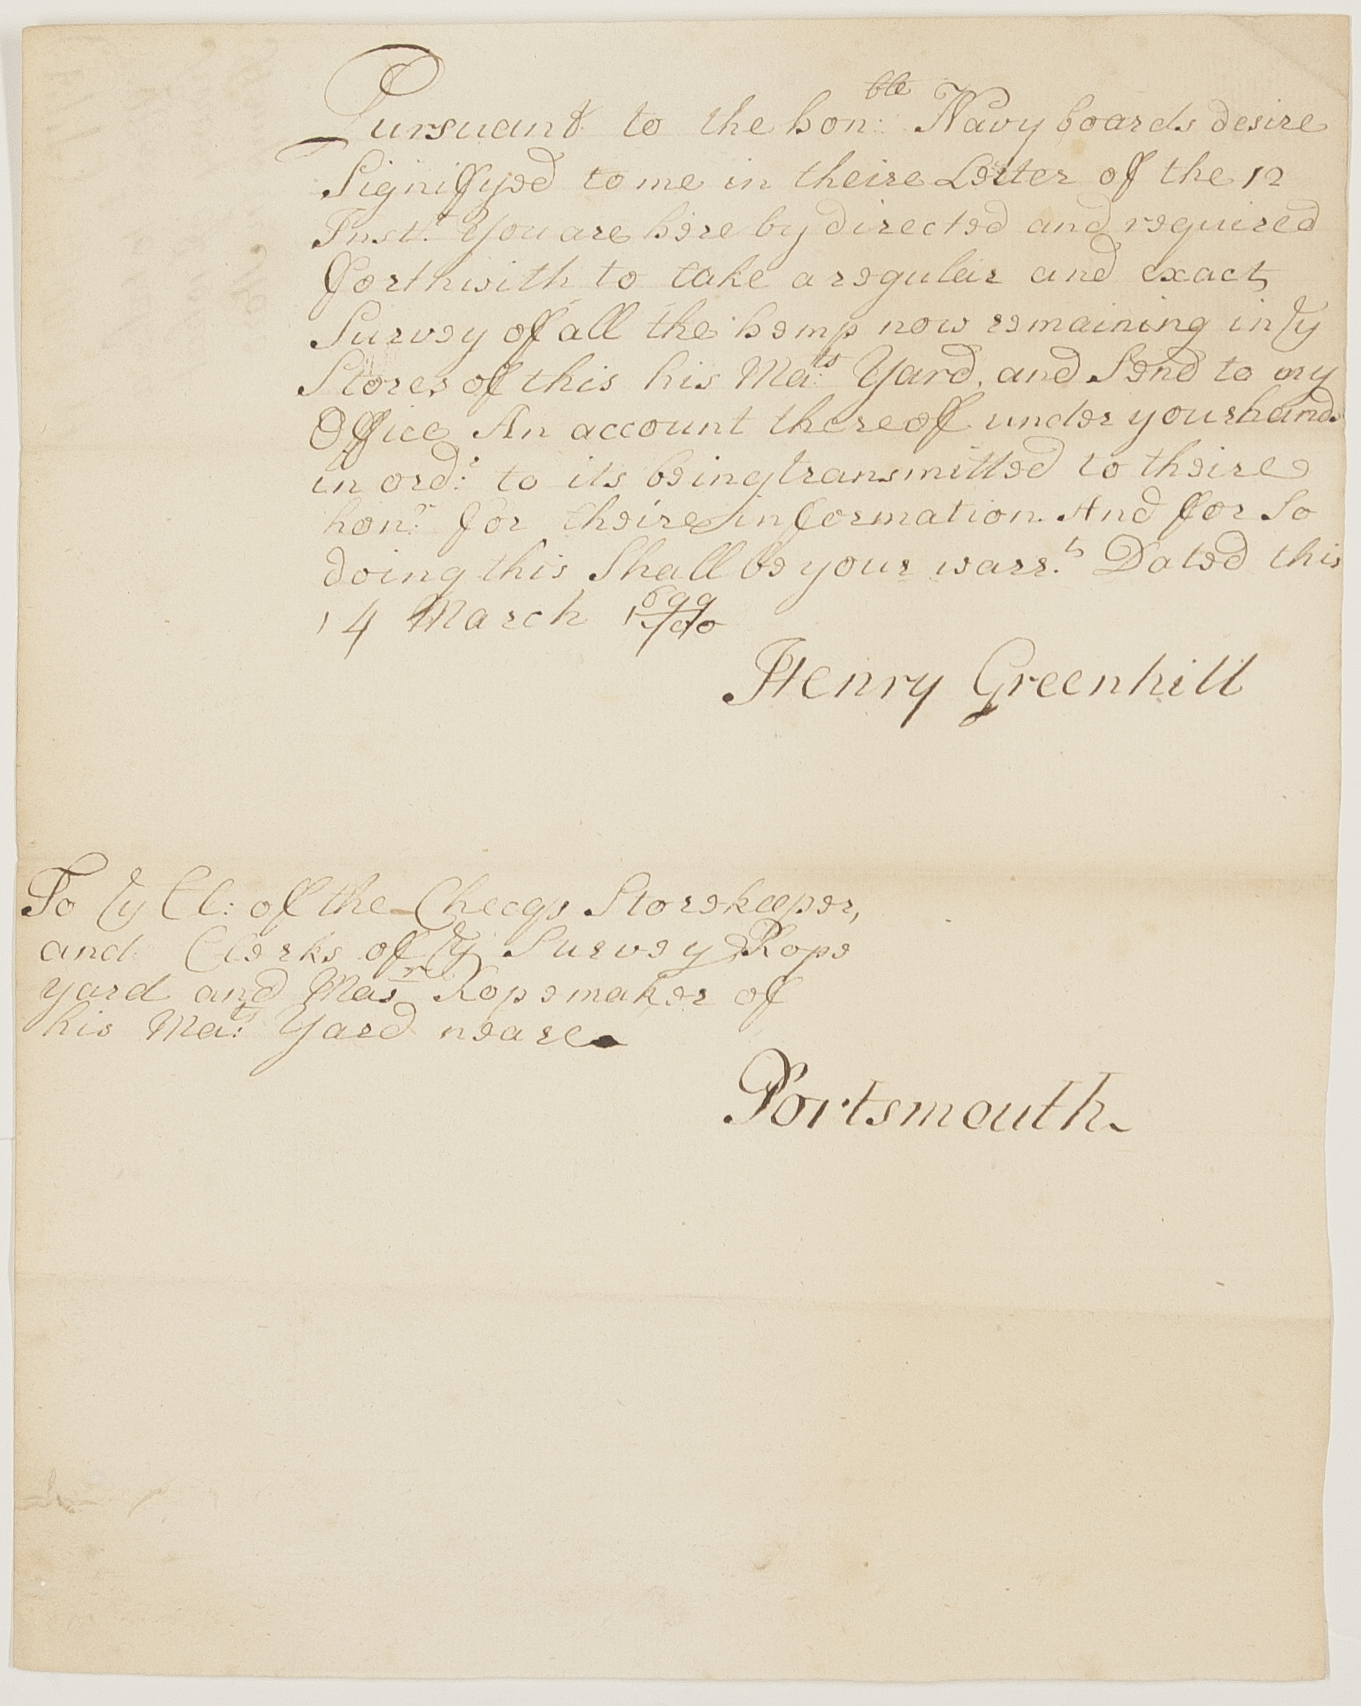 Pursuant to the hon:ble Navy boards desire
Signiffyed to me in theire Letter of the 12
Inst:t You are hereby directed and required
fforthwith to take a regular and exact
Survey of all the hemp now remaining in ye
Stores of this his Ma:ts Yard, and Send to my
Office An account thereof under your hands
in ord:r to its being transmitted to theire
hon:r for theire information. And for So
doing this Shall be your warr:t Dated this
14 March 1699/700
Henry Greenhill
To ye Cl: of the Checqs Storekeeper,
and Clerks of ye Survey Rope
yard and Mas:r Ropemaker of
his Ma:ts Yard neare
Portsmouth